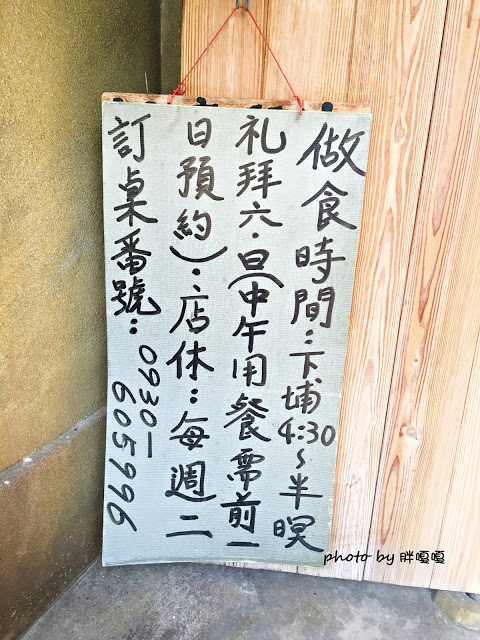 做食時間：下埔4:30~半暝
礼拜六.日(中午用餐需前一
日預約).店休：每週二
訂桌番號：0930-
605996
photo by 胖嘎嘎